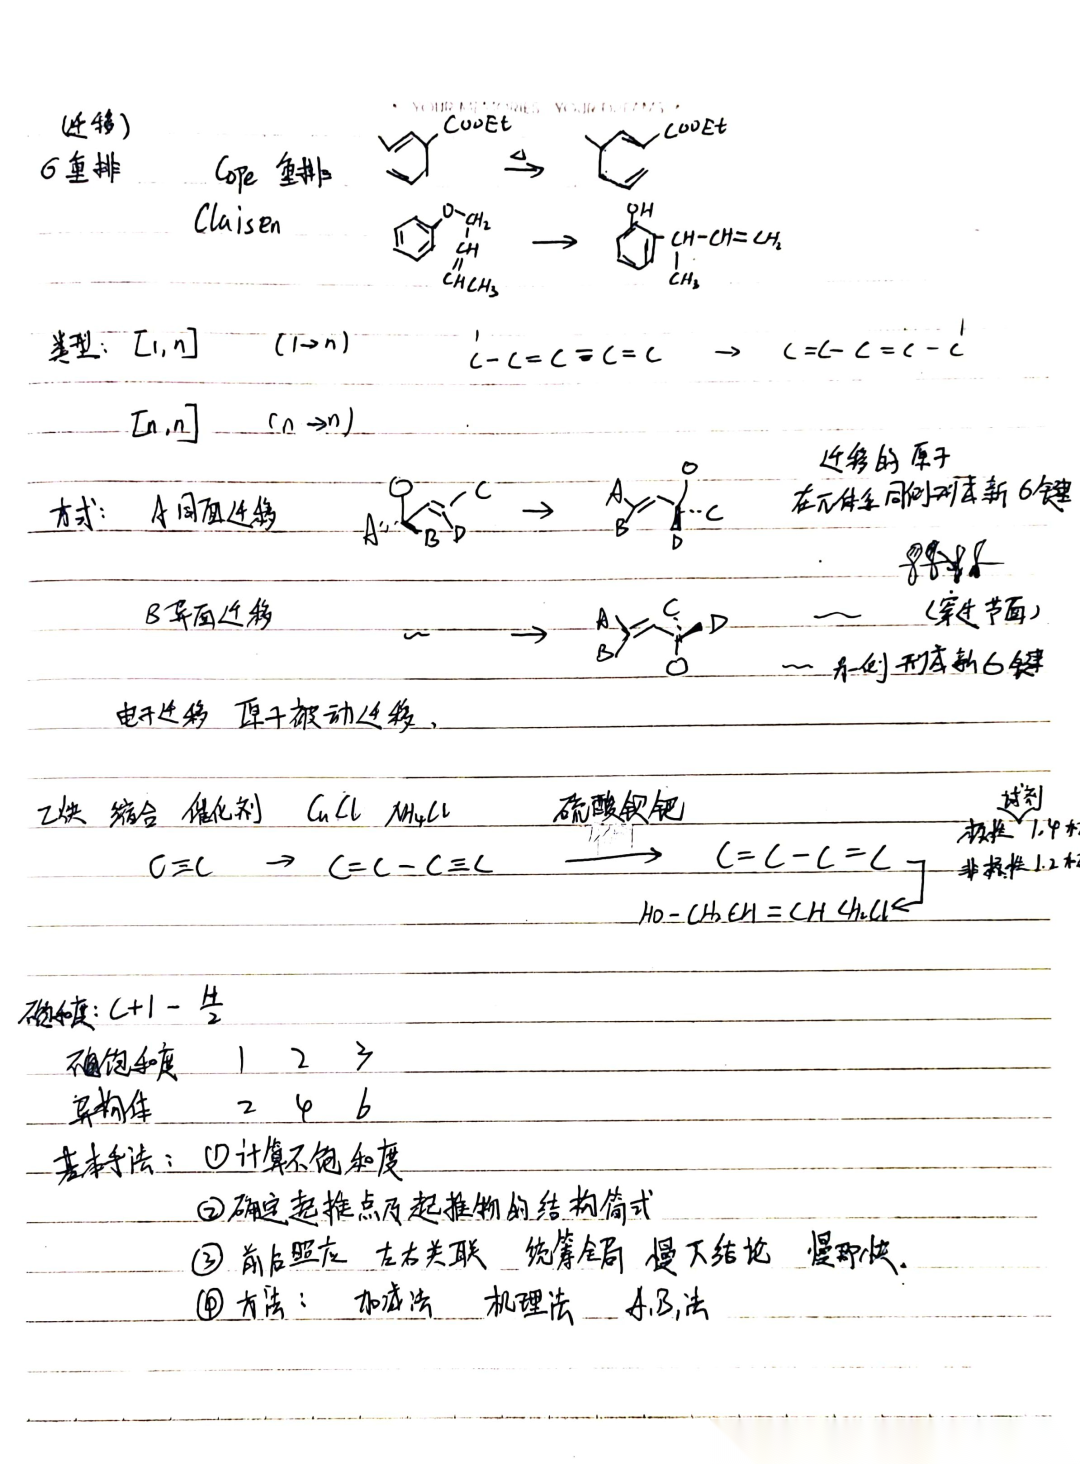 YOUR MEMORIES YOUR DREAMS
(迁移)
σ重排 Cope 重排 COOEt △ COOEt
Claisen O-CH2 CH CHCH3 → OH CH-CH=CH2 CH3
类型: [1,n] (1→n) C-C=C=C=C → C=C-C=C-C
[n,n] (n→n)
方式: A同面迁移 A B C D → A B C D 迁移的原子
在π体系同侧形成新σ键
B异面迁移 ~ → A B C D ~ (穿过节面)
~ 异侧形成新σ键
电子迁移 原子被动迁移、
乙炔 缩合 催化剂 CuCl NH4Cl 硫酸钡钯 试剂
C≡C → C=C-C≡C → C=C-C=C 极性 1.4加
非极性 1.2加
HO-CH2CH=CHCH2Cl
不饱和度: C+1-H/2
不饱和度 1 2 3
异构体 2 4 6
基本手法: ①计算不饱和度
②确定起推点及起推物的结构简式
③前后照应 左右关联 统筹全局 慢下结论 慢即快.
④方法: 加减法 机理法 A,B,法